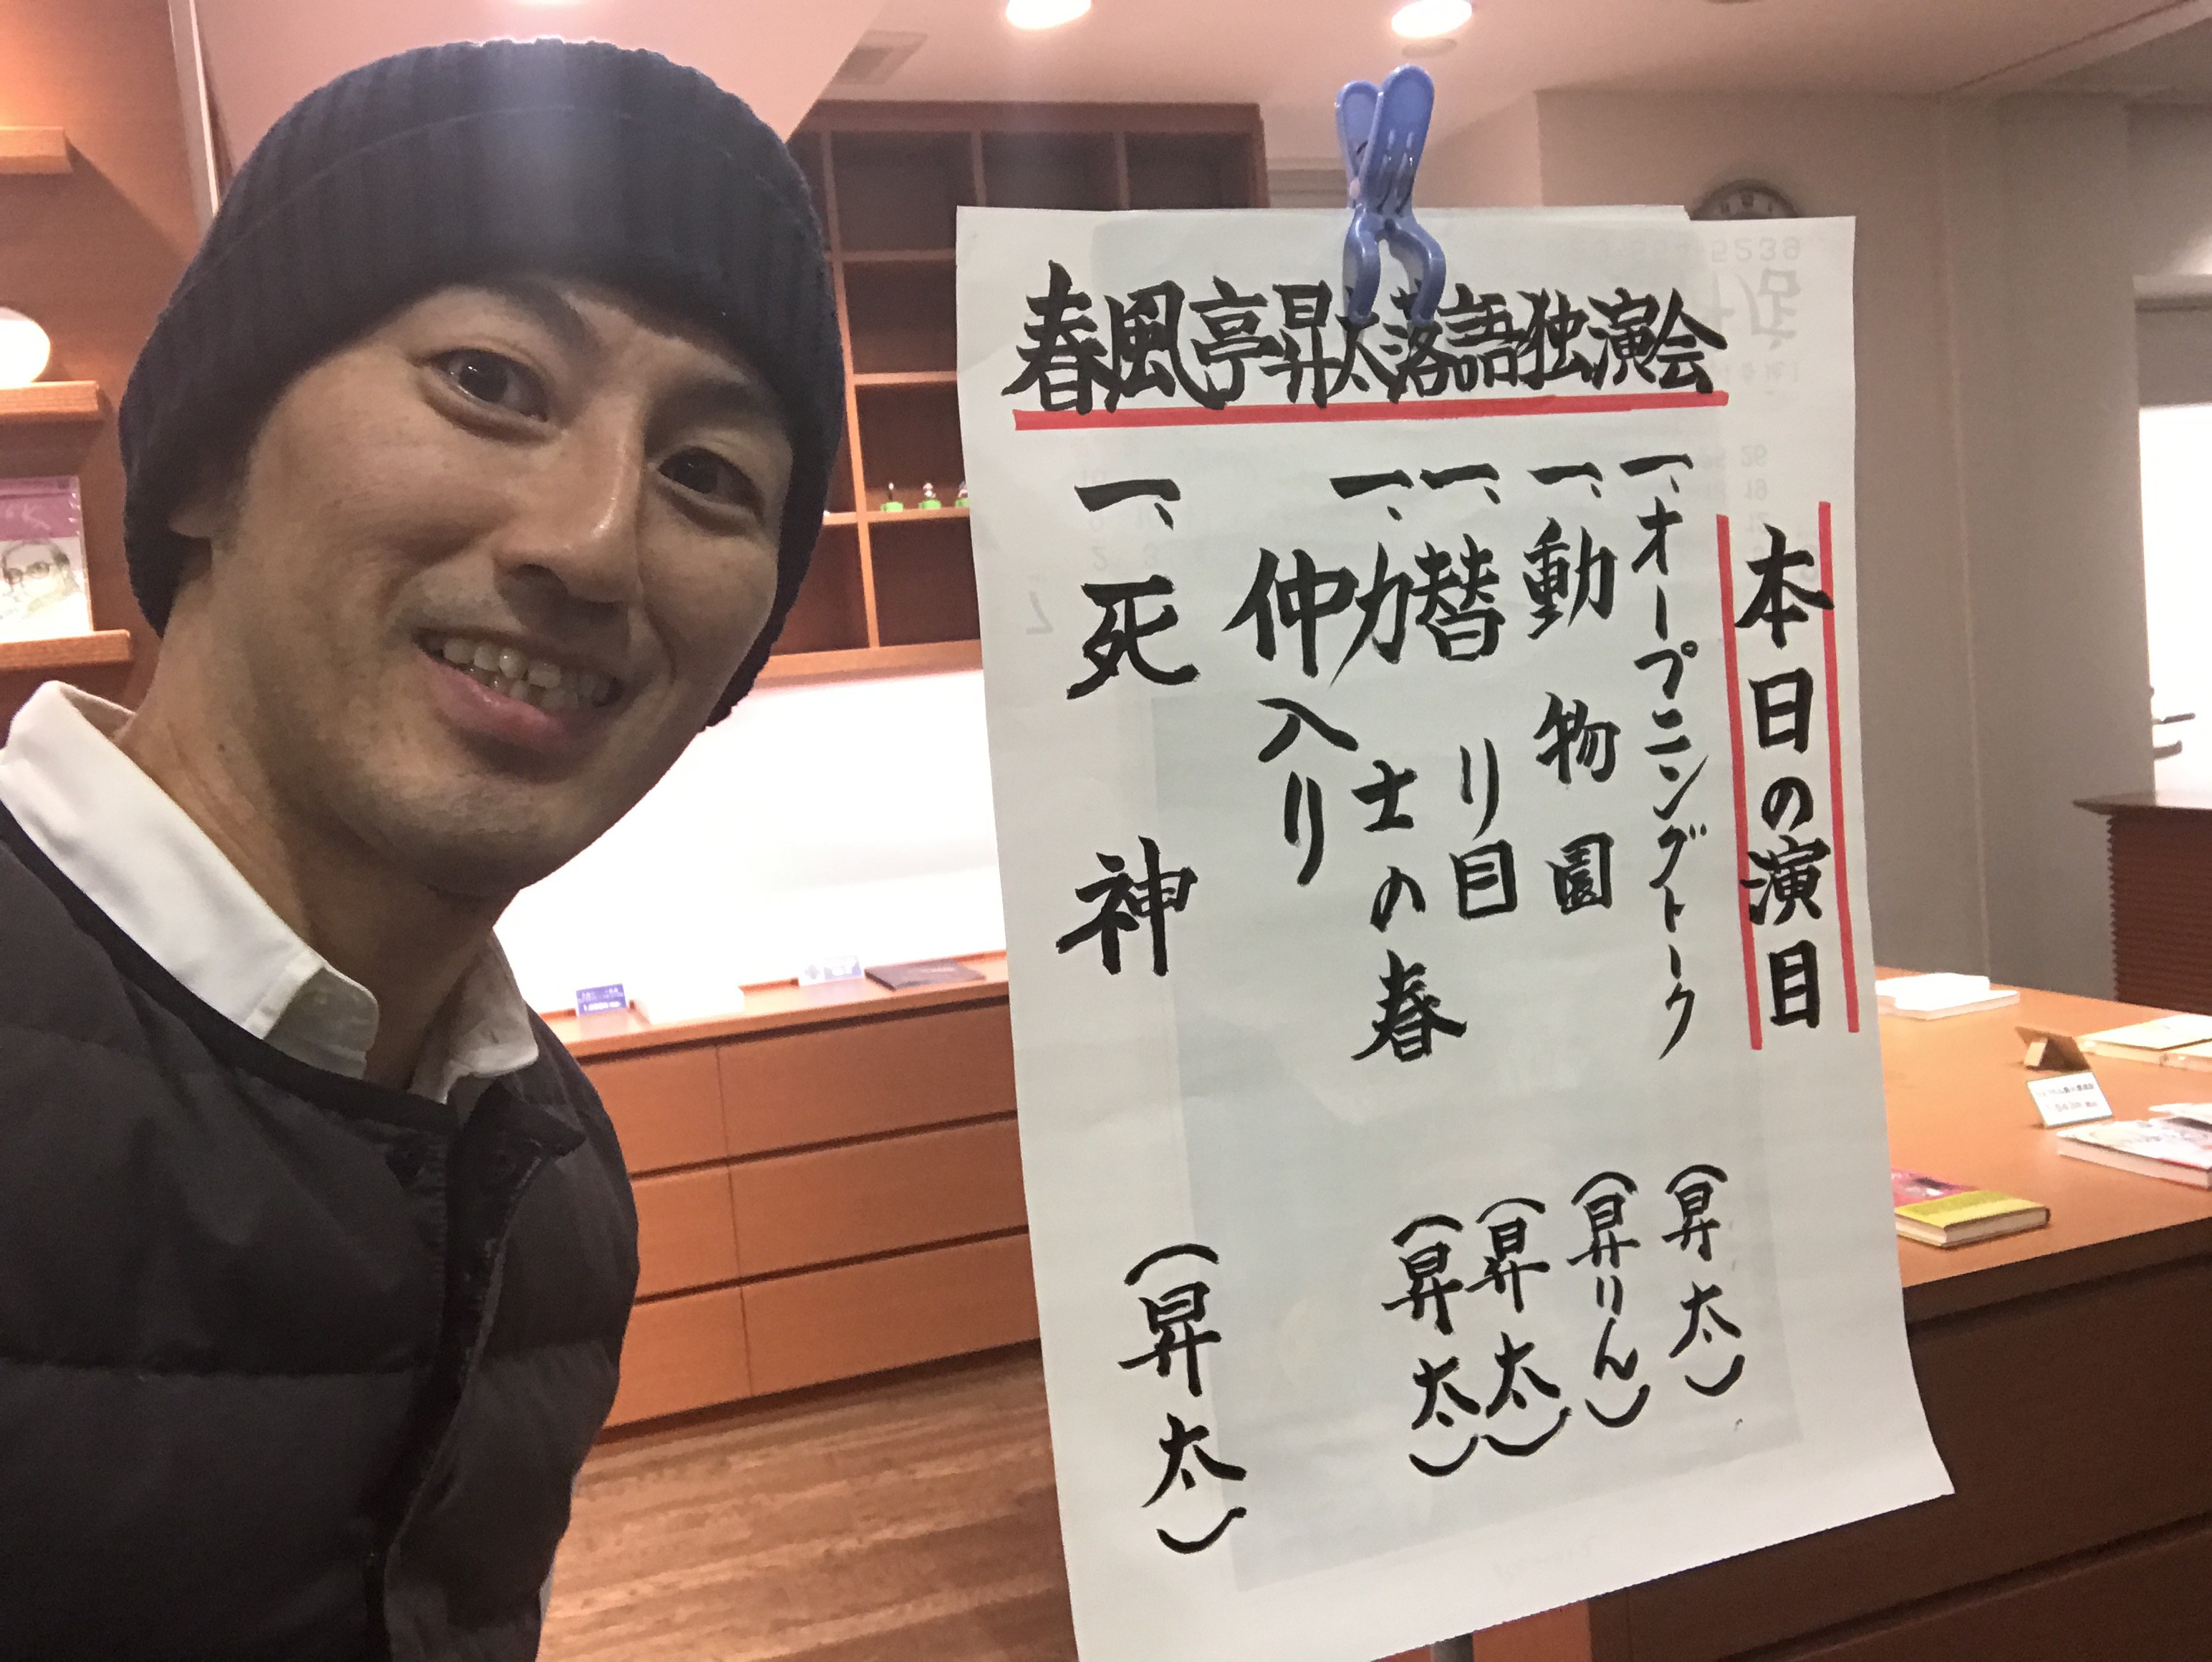 春風亭昇太落語独演会
本日の演目
一、オープニングトーク (昇太)
一、動物園 (昇りん)
一、替り目 (昇太)
一、力士の春 (昇太)
仲入り
一、死神 (昇太)